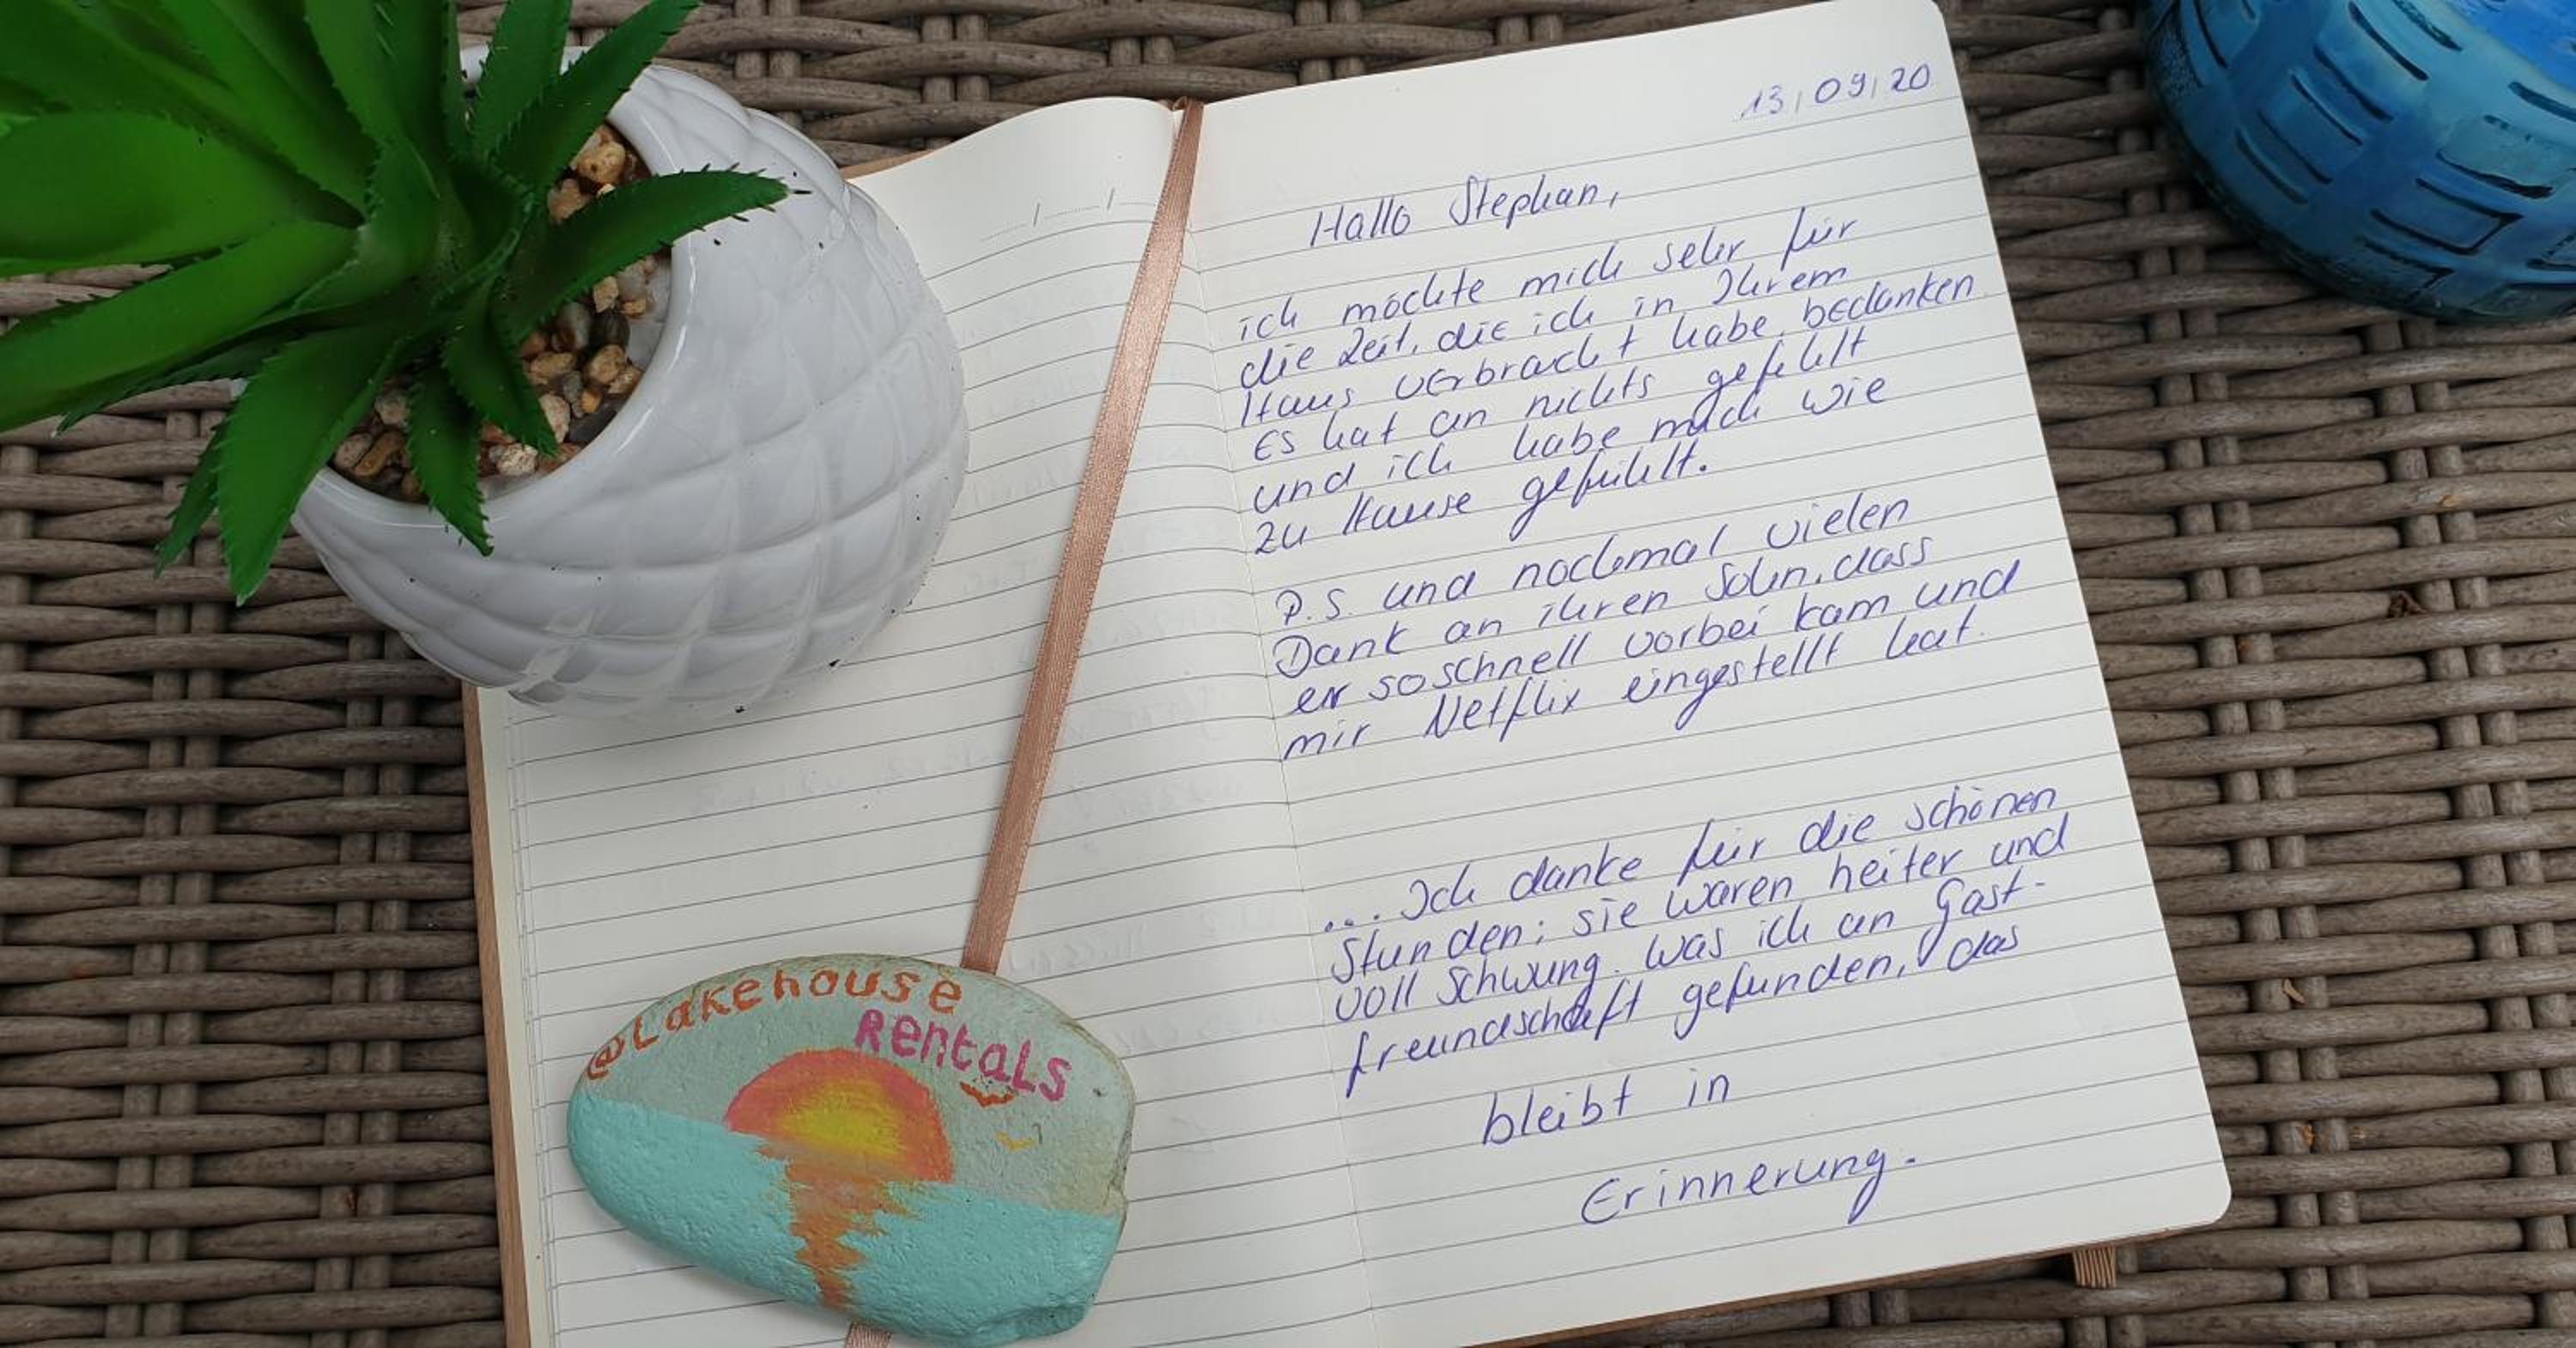 13/09/20
Hallo Stephan,
ich möchte mich sehr für
die Zeit, die ich in Ihrem
Haus verbracht habe, bedanken
Es hat an nichts gefehlt
und ich habe mich wie
zu Hause gefühlt.
P.S. und nochmal vielen
Dank an ihren Sohn, dass
er so schnell vorbei kam und
mir Netflix eingestellt hat.
... Ich danke für die schönen
Stunden; sie waren heiter und
voll Schwung. Was ich an Gast-
freundschaft gefunden, das
bleibt in
Erinnerung.
@Lakehouse
Rentals